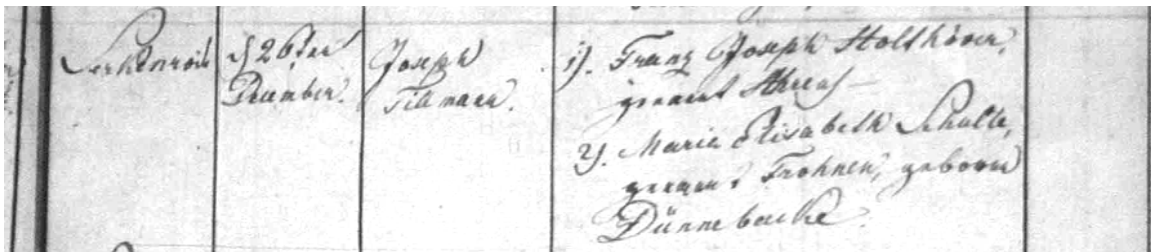 d 26ten
December.
Joseph
Tillmann.
1). Franz Joseph Holthöver,
genannt
2). Maria Elisabeth Schulte,
genannt Frohnen, geborne
Dünnebacke.